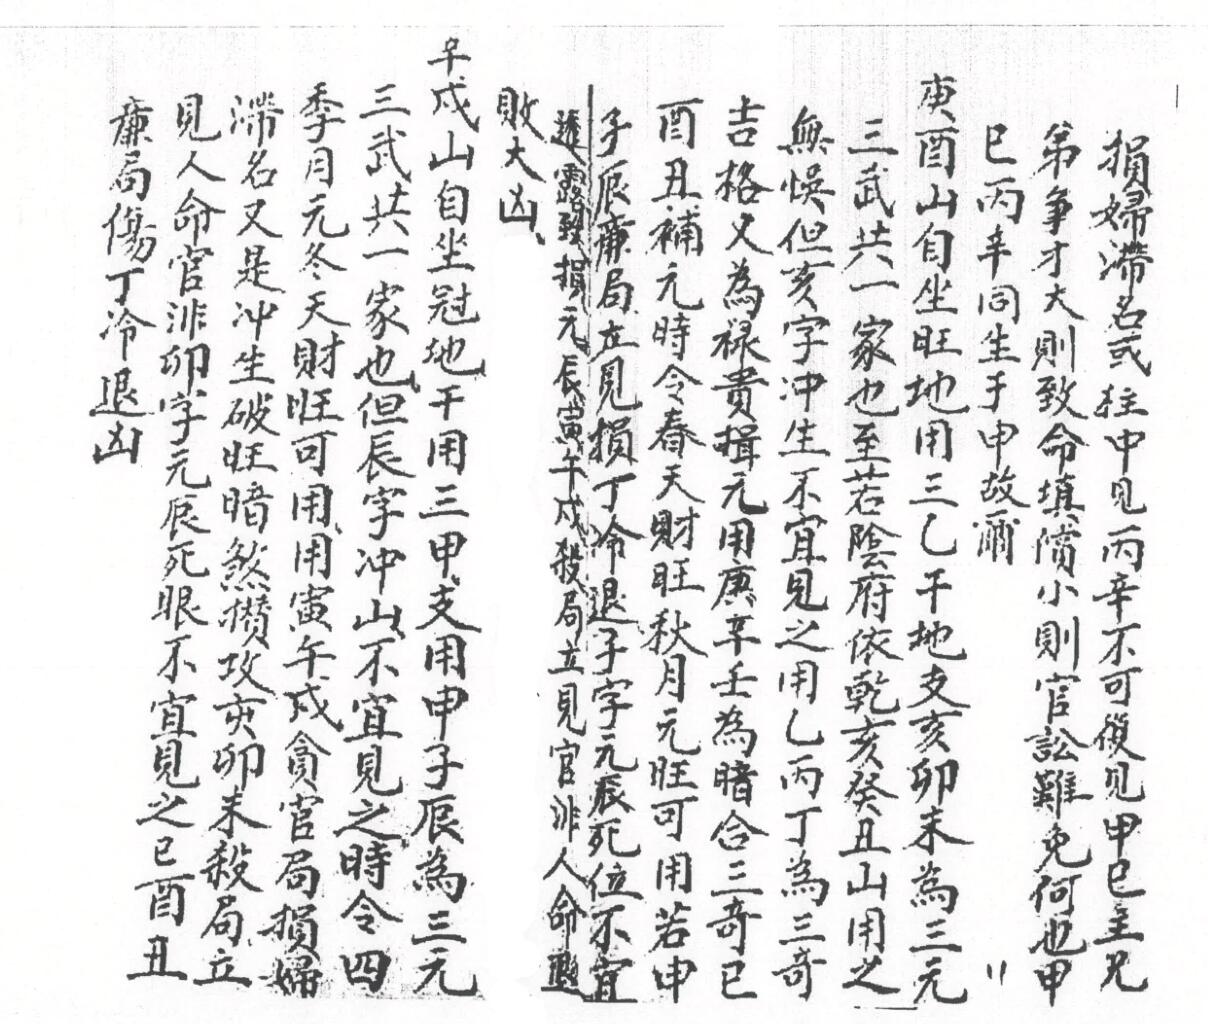 損婦滯名或柱中见丙辛不可復见甲巳主兄
弟爭才大則致命填償小則官訟難免何也甲
巳丙辛同生于申故爾
庚酉山自坐旺地用三乙干地支亥卯未為三元
三武共一家也至若陰府依乾亥癸丑山用之
無悮但亥字冲生不宜見之用乙丙丁為三奇
吉格又為禄貴揖元用庚辛壬為暗合三奇巳
酉丑補元時令春天財旺秋月元旺可用若申
子辰廉局立見損丁冷退子字元辰死位不宜
透露致損元辰寅午戌殺局立見官非人命退
敗大凶
辛戌山自坐冠地干用三甲支用申子辰為三元
三武共一家也但辰字冲山不宜見之時令四
季月元冬天財旺可用用寅午戌貪官局損婦
滯名又是冲生破旺暗煞攢攻亥卯未殺局立
見人命官非卯字元辰死眠不宜見之巳酉丑
廉局傷丁冷退凶